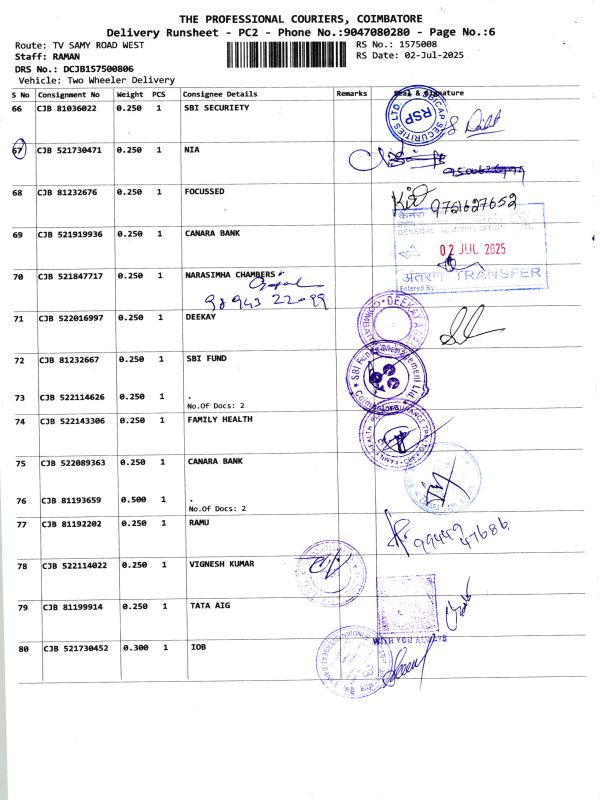 THE PROFESSIONAL COURIERS, COIMBATORE
Delivery Runsheet - PC2 - Phone No.:9047080280 - Page No.:6
Route: TV SAMY ROAD WEST RS No.: 1575008
Staff: RAMAN RS Date: 02-Jul-2025
DRS No.: DCJB157500806
Vehicle: Two Wheeler Delivery
S No Consignment No Weight PCS Consignee Details Remarks Seal & Signature
66 CJB 81036022 0.250 1 SBI SECURIETY
SBICAP SECURITIES LTD. RSP
67 CJB 521730471 0.250 1 NIA
68 CJB 81232676 0.250 1 FOCUSSED
9751627652
69 CJB 521919936 0.250 1 CANARA BANK
केनरा
02 JUL 2025
अंतरण TRANSFER
Entered By
70 CJB 521847717 0.250 1 NARASIMHA CHAMBERS
98943 22099
71 CJB 522016997 0.250 1 DEEKAY
DEEKAY
72 CJB 81232667 0.250 1 SBI FUND
SBI Funds Management Ltd.
73 CJB 522114626 0.250 1 .
No.Of Docs: 2
74 CJB 522143306 0.250 1 FAMILY HEALTH
75 CJB 522089363 0.250 1 CANARA BANK
76 CJB 81193659 0.500 1 .
No.Of Docs: 2
77 CJB 81192202 0.250 1 RAMU
99449
47686
78 CJB 522114022 0.250 1 VIGNESH KUMAR
79 CJB 81199914 0.250 1 TATA AIG
WITH YOU ALWAYS
80 CJB 521730452 0.300 1 IOB